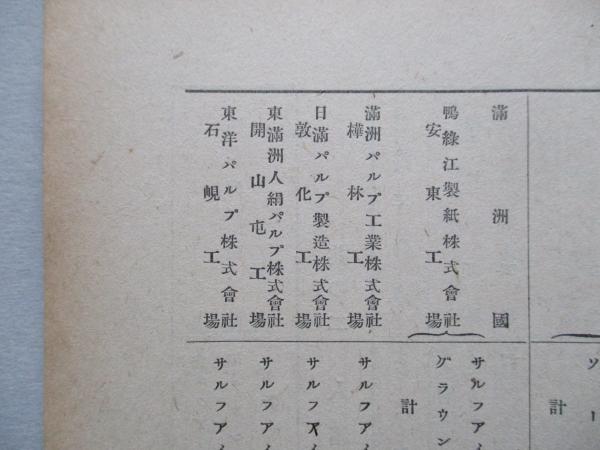 滿洲國
鴨綠江製紙株式會社
安東工場
滿洲パルプ工業株式會社
樺林工場
日滿パルプ製造株式會社
敦化工場
東滿洲人絹パルプ株式會社
開山屯工場
東洋パルプ株式會社
石峴工場
ソー
計
サルフアイ
グラウン
計
サルフアイ
サルフアイ
サルフアイ
サルフアイ